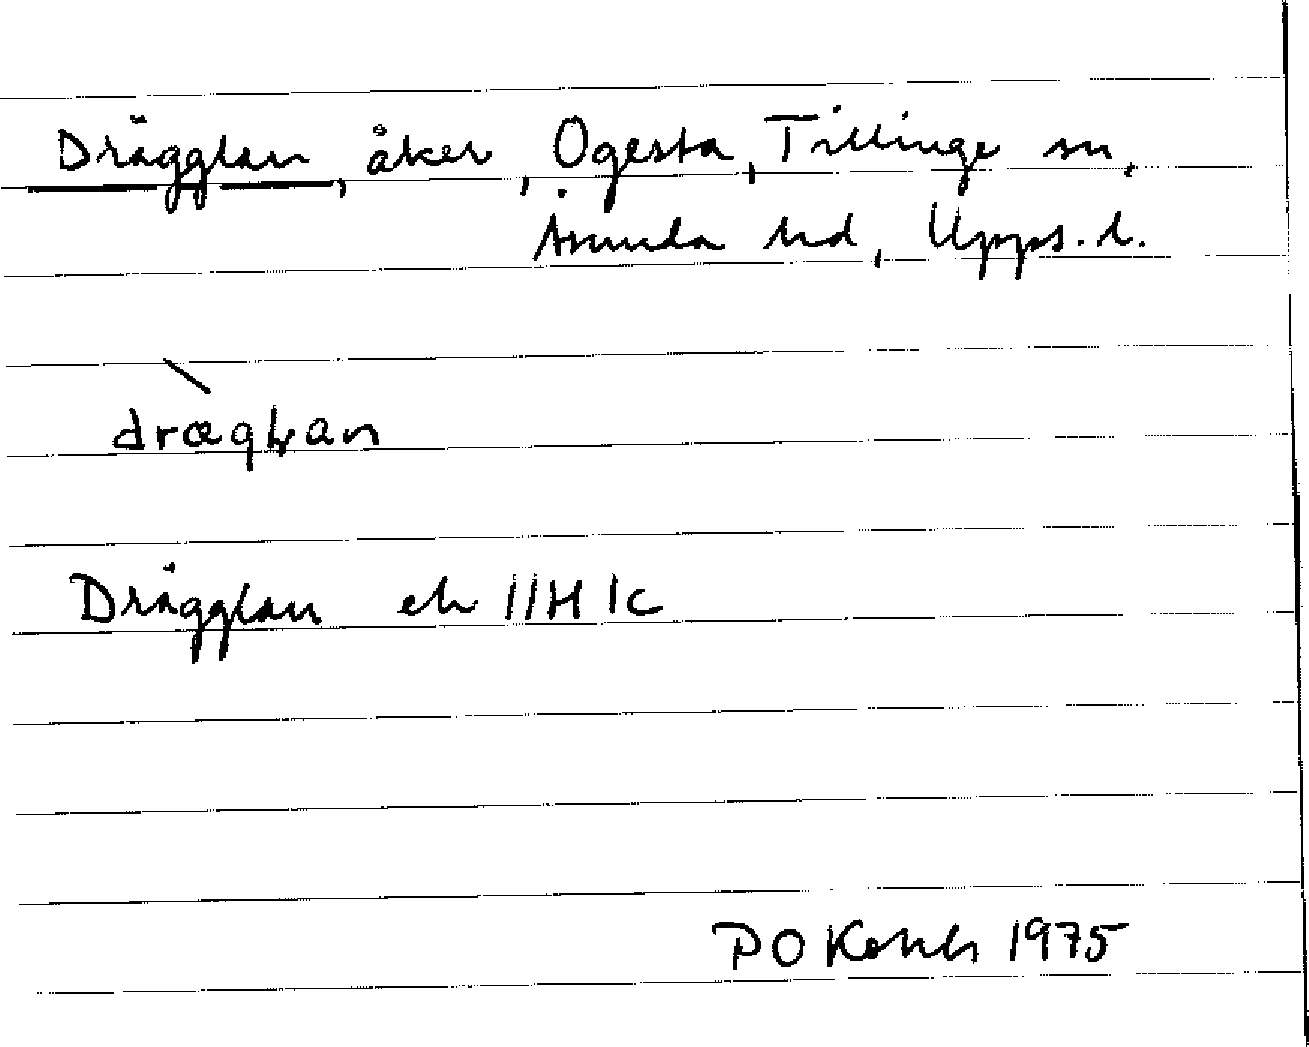 Drägglan, åker, Ogesta, Tillinge sn,
Åsunda hd, Upps. l.
drægłan
Drägglan ek 11H 1c
P O 1975